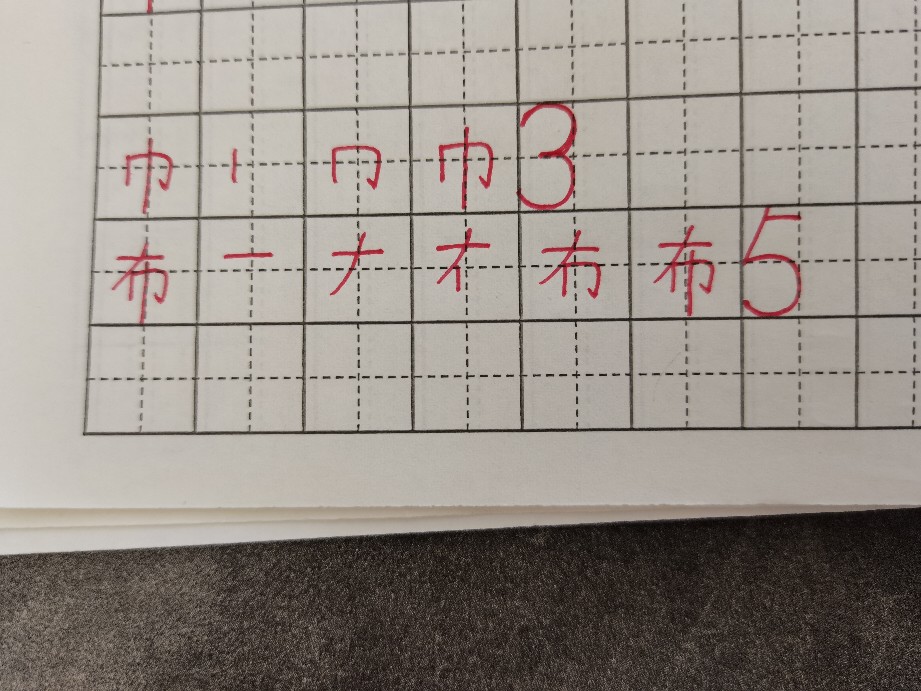 巾 丨 冂 巾 3
布 一 ナ 才 冇 布 5